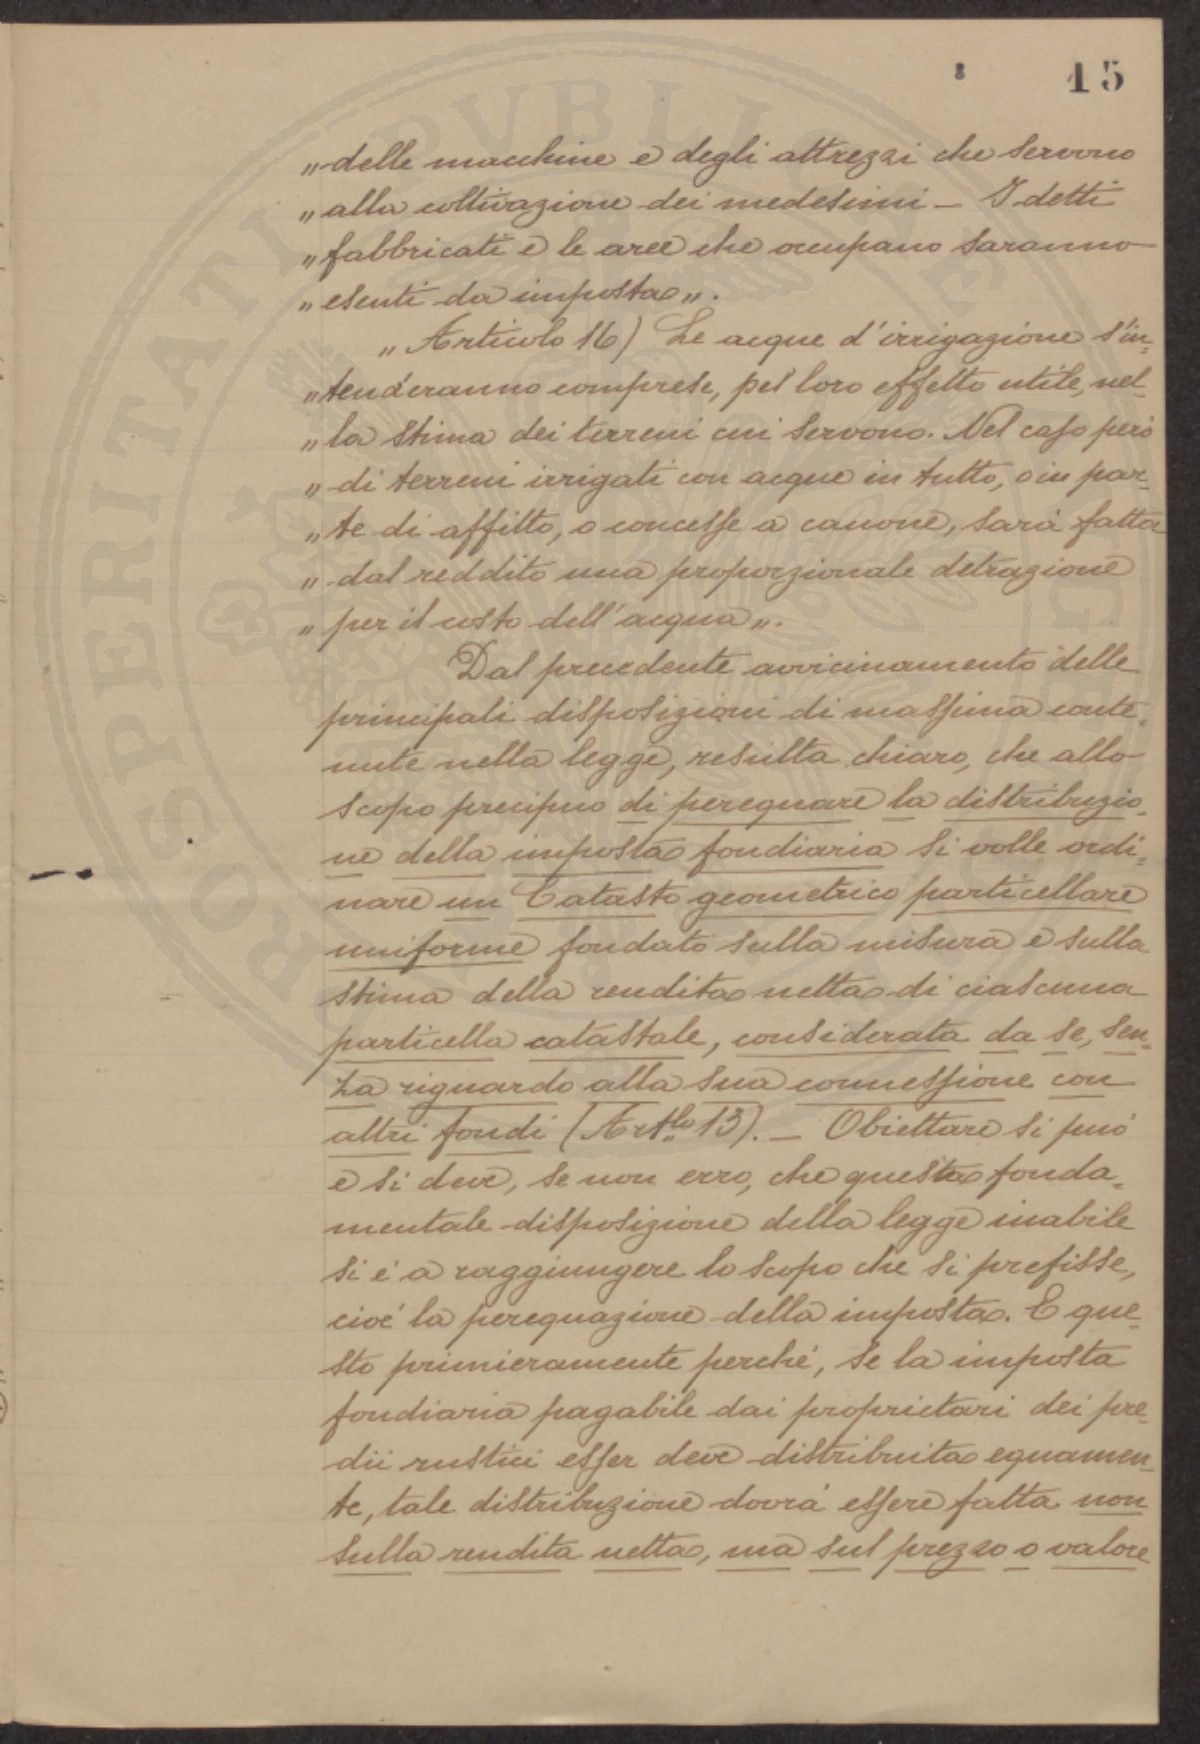 8 15
„ delle macchine e degli attrezzi che servono
„ alla coltivazione dei medesimi – I detti
„ fabbricati e le aree che occupano saranno
„ esenti da imposta „.
„ Articolo 16) Le acque d'irrigazione s'in-
„ tenderanno comprese, pel loro effetto utile, nel-
„ la stima dei terreni cui servono. Nel caso però
„ di terreni irrigati con acque in tutto, o in par-
„ te di affitto, o concesse a canone, sarà fatta
„ dal reddito una proporzionale detrazione
„ per il costo dell'acqua „.
Dal precedente avvicinamento delle
principali disposizioni di massima conte-
nute nella legge, resulta chiaro, che allo
scopo precipuo di perequare la distribuzio-
ne della imposta fondiaria si volle ordi-
nare un Catasto geometrico particellare
uniforme fondato sulla misura e sulla
stima della rendita netta di ciascuna
particella catastale, considerata da se, sen-
za riguardo alla sua connessione con
altri fondi (Artlo 13). – Obiettare si può
e si deve, se non erro, che questa fonda-
mentale disposizione della legge inabile
si è a raggiungere lo scopo che si prefisse,
cioè la perequazione della imposta. E que-
sto primieramente perché, se la imposta
fondiaria pagabile dai proprietari dei pre-
dii rustici esser deve distribuita equamen-
te, tale distribuzione dovrà essere fatta non
sulla rendita netta, ma sul prezzo o valore
ROSPERITATI PVBLICAE